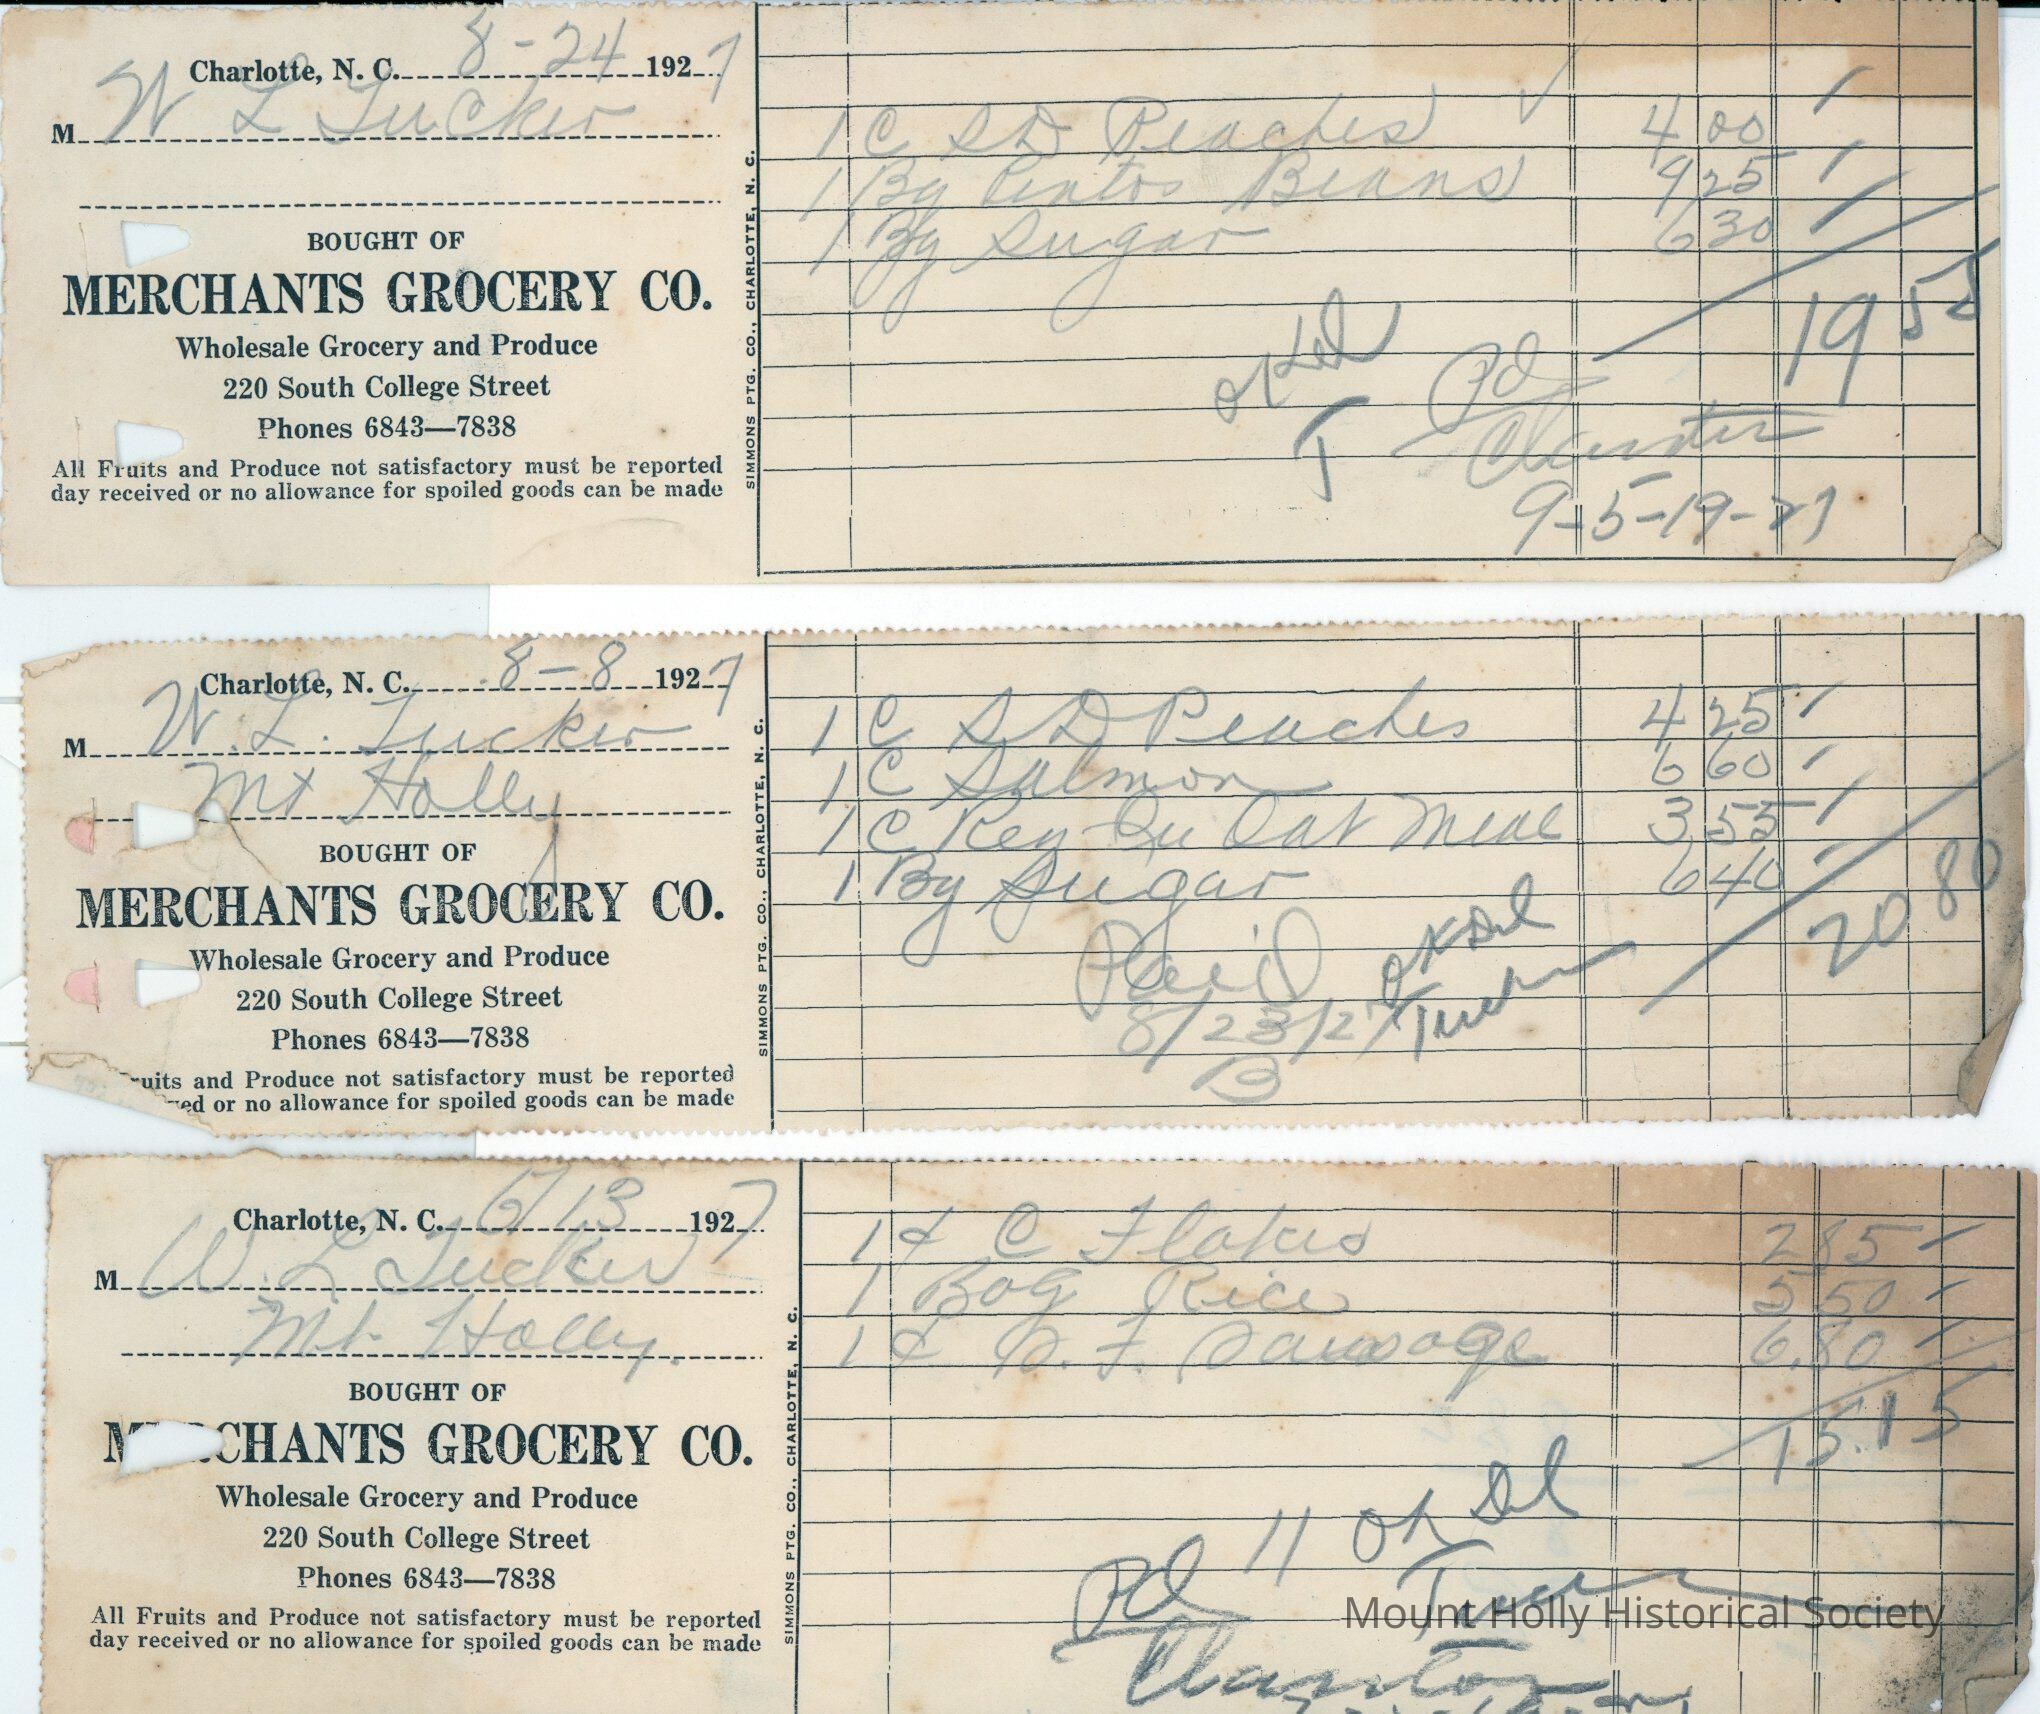 Charlotte, N. C. 8-24 1927
M W L Tucker
BOUGHT OF
MERCHANTS GROCERY CO.
Wholesale Grocery and Produce
220 South College Street
Phones 6843—7838
All Fruits and Produce not satisfactory must be reported
day received or no allowance for spoiled goods can be made
SIMMONS PTG. CO., CHARLOTTE, N. C.
1 C SD Peaches 4 00
1 Bg Pintos Beans 9 25
1 Bg Sugar 6 30
19 55
OK Del
T
Pd
Clanton
9-5-19-27
Charlotte, N. C. 8-8 1927
M W. L. Tucker
Mt Holly
BOUGHT OF
MERCHANTS GROCERY CO.
Wholesale Grocery and Produce
220 South College Street
Phones 6843—7838
ruits and Produce not satisfactory must be reported
ed or no allowance for spoiled goods can be made
SIMMONS PTG. CO., CHARLOTTE, N. C.
1 C SD Peaches 4 25
1 C Salmon 6 60
1 C Reg Qu Oat Meal 3 55
1 Bg Sugar 6 40
20 80
Paid OK Del
8/23/27 Tucker
B
Charlotte, N. C. 6/13 1927
M W. L Tucker
Mt. Holly.
BOUGHT OF
M CHANTS GROCERY CO.
Wholesale Grocery and Produce
220 South College Street
Phones 6843—7838
All Fruits and Produce not satisfactory must be reported
day received or no allowance for spoiled goods can be made
SIMMONS PTG. CO., CHARLOTTE, N. C.
1 C Flakes 2 85
1 Bag Rice 5 50
1 Sausage 6.80
15.15
11 OK Del
Pd
Clanton
Mount Holly Historical Society